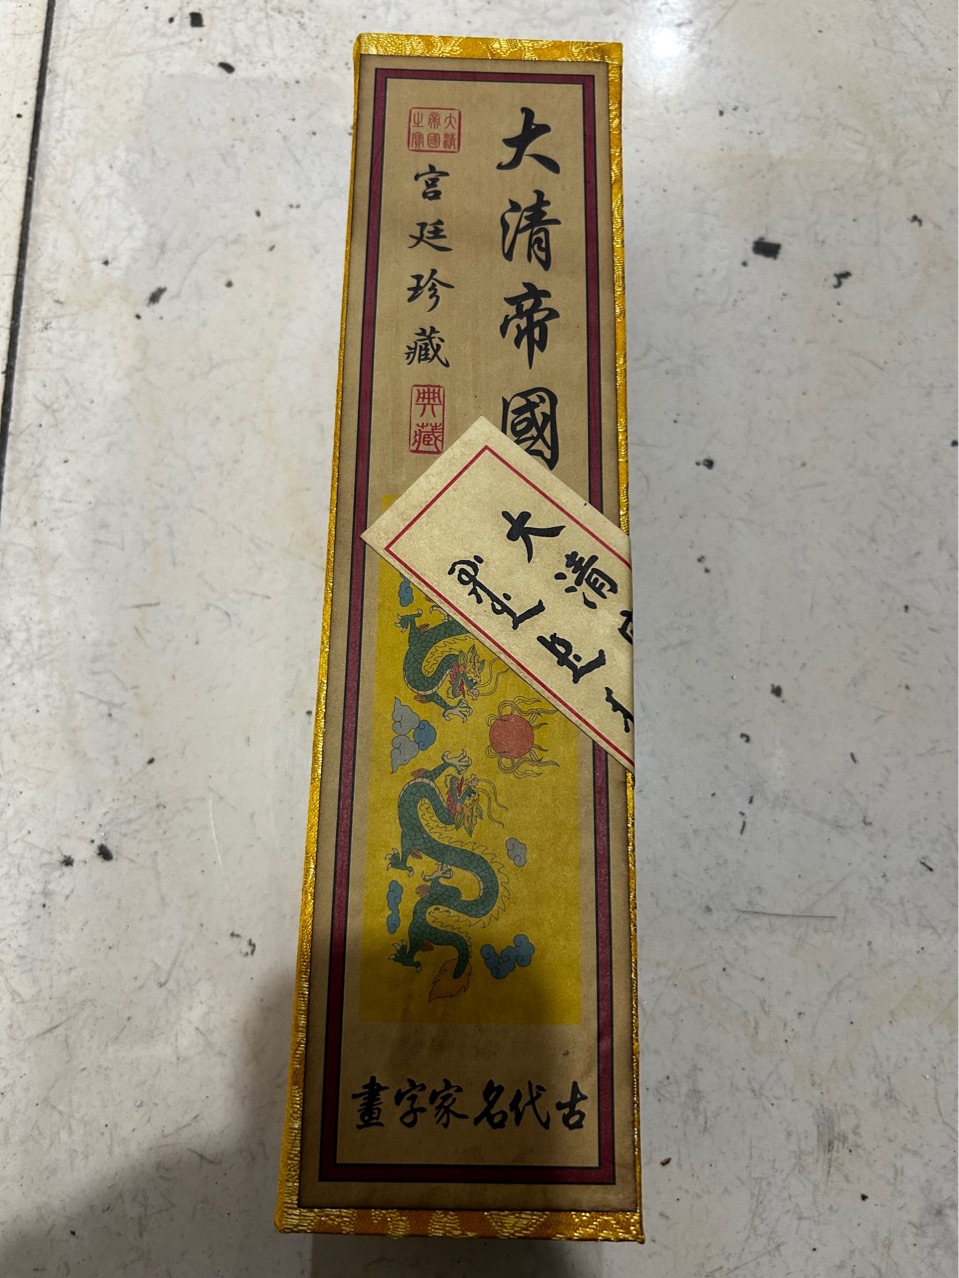 大清帝國
大清帝國之寶
宮廷珍藏
典藏
大清
古代名家字畫